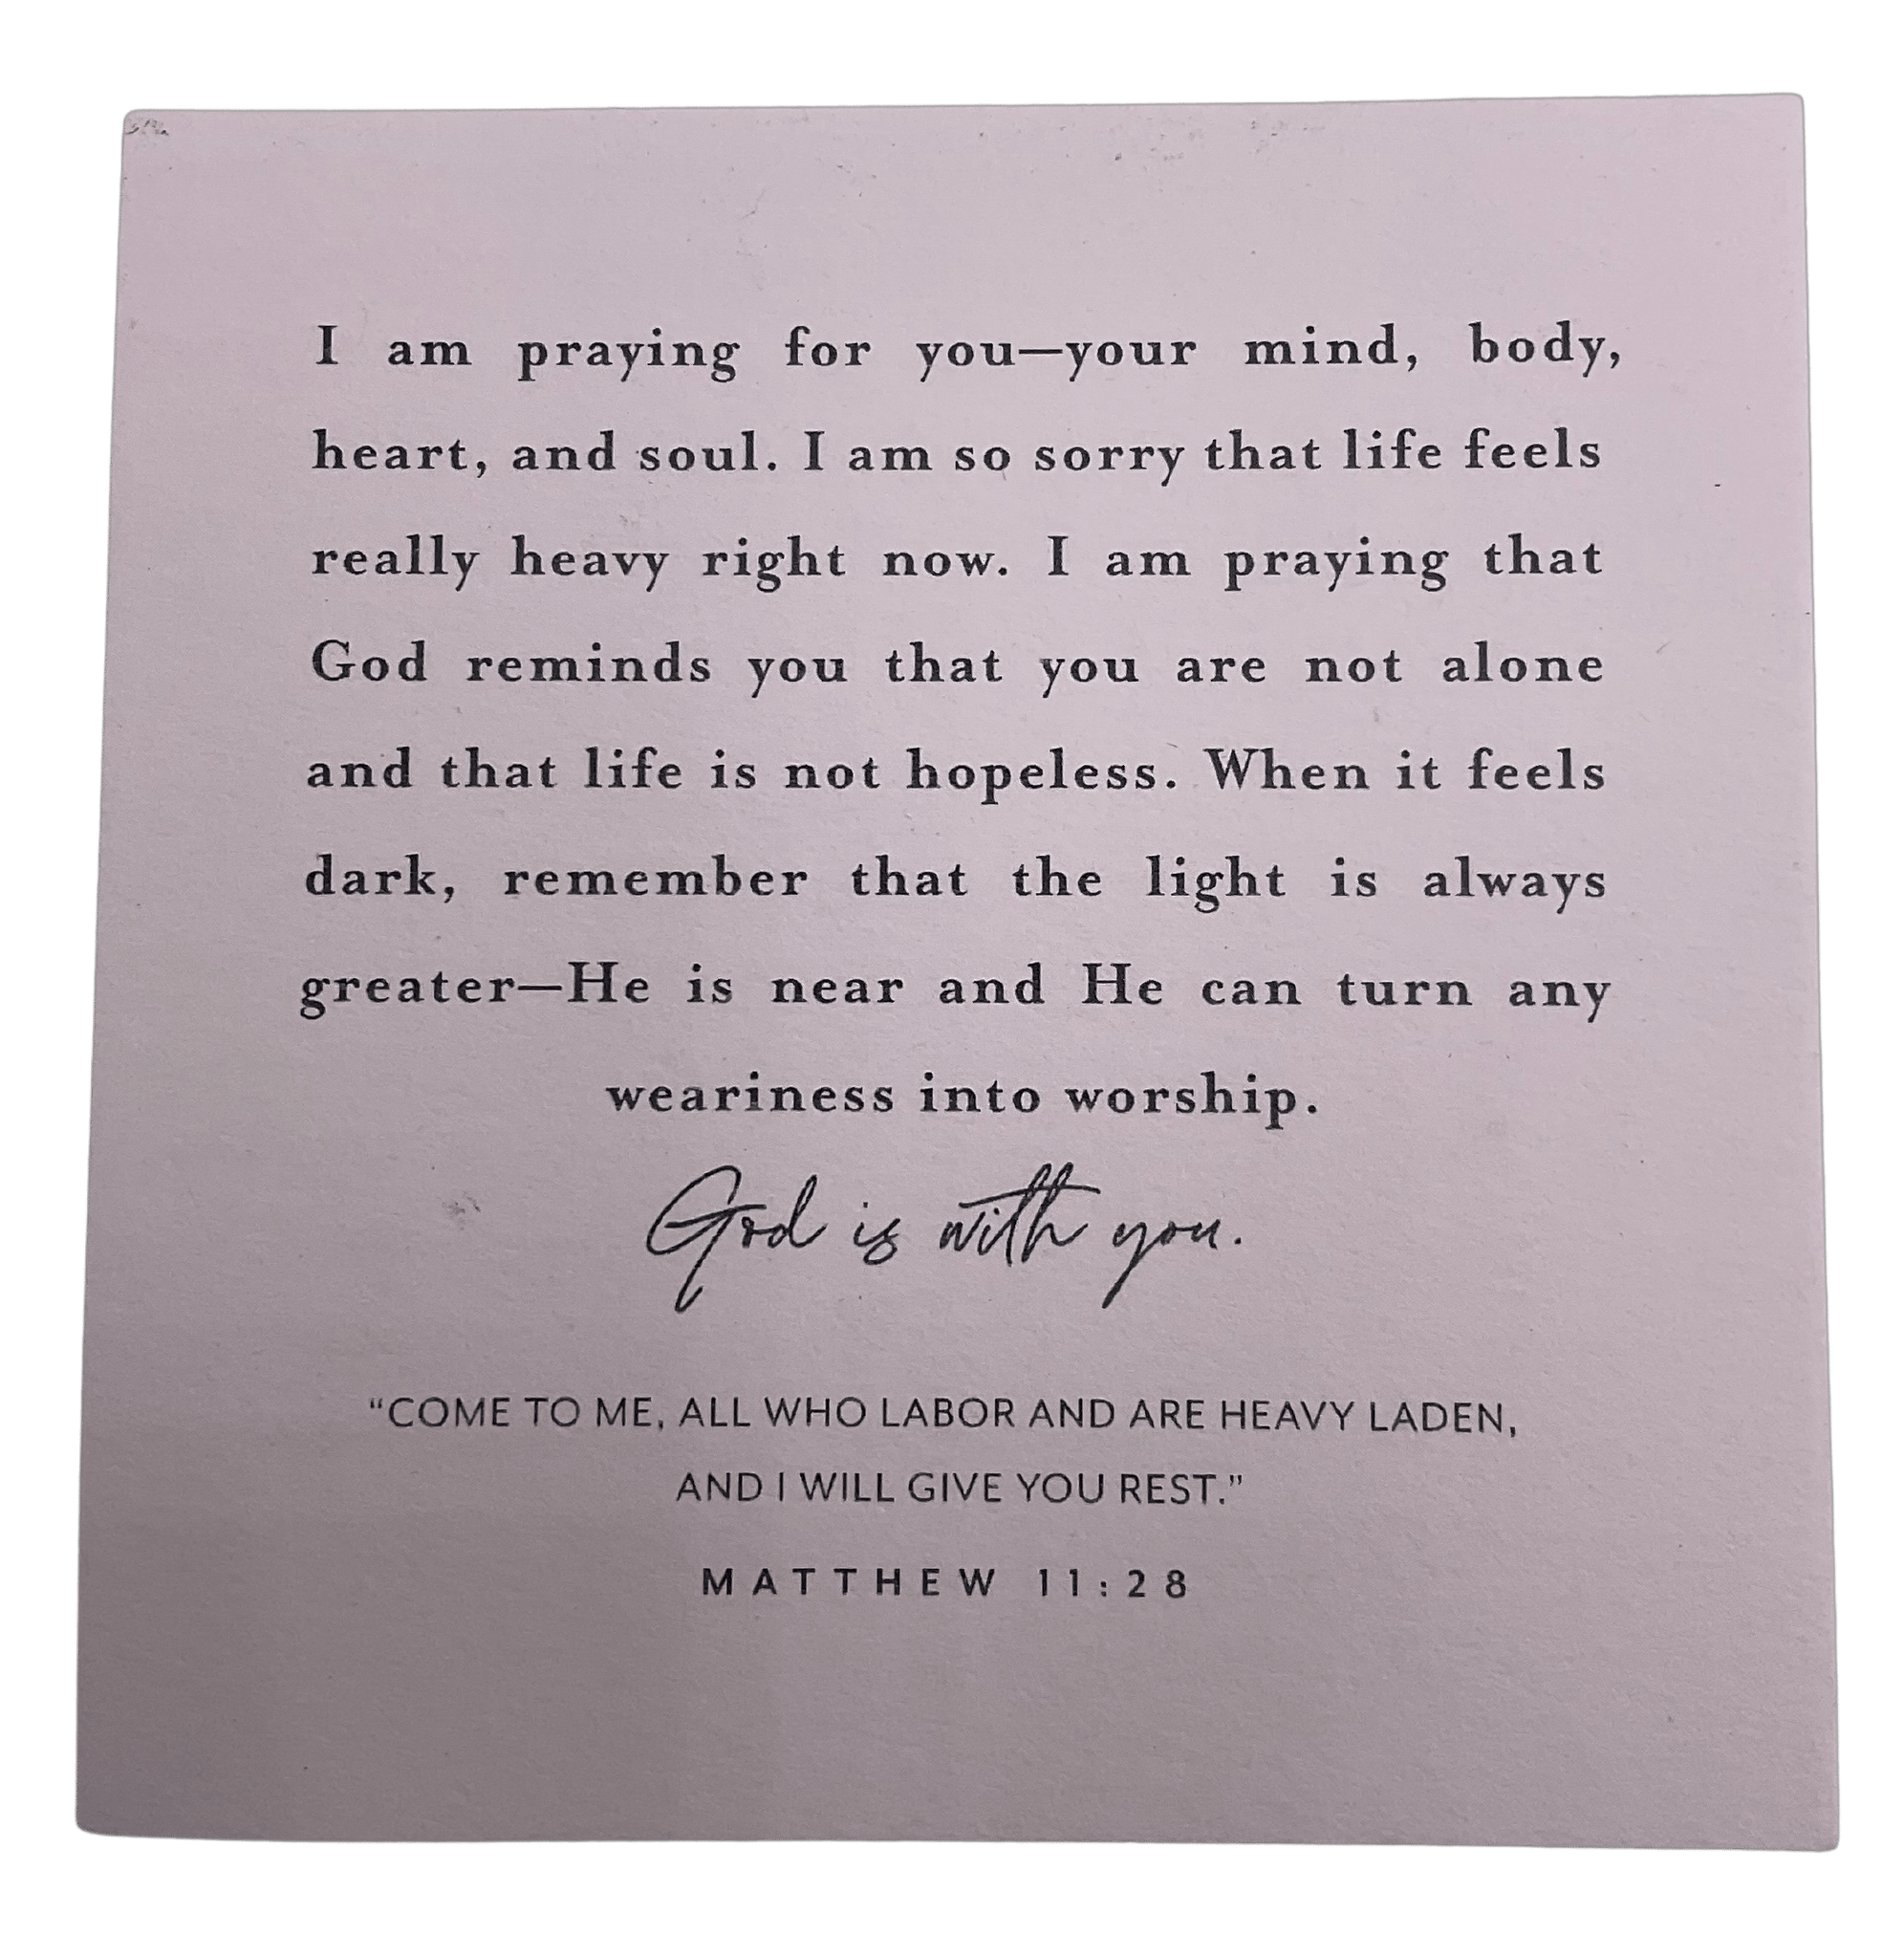 I am praying for you—your mind, body,
heart, and soul. I am so sorry that life feels
really heavy right now. I am praying that
God reminds you that you are not alone
and that life is not hopeless. When it feels
dark, remember that the light is always
greater—He is near and He can turn any
weariness into worship.
God is with you.
“COME TO ME, ALL WHO LABOR AND ARE HEAVY LADEN,
AND I WILL GIVE YOU REST.”
MATTHEW 11:28